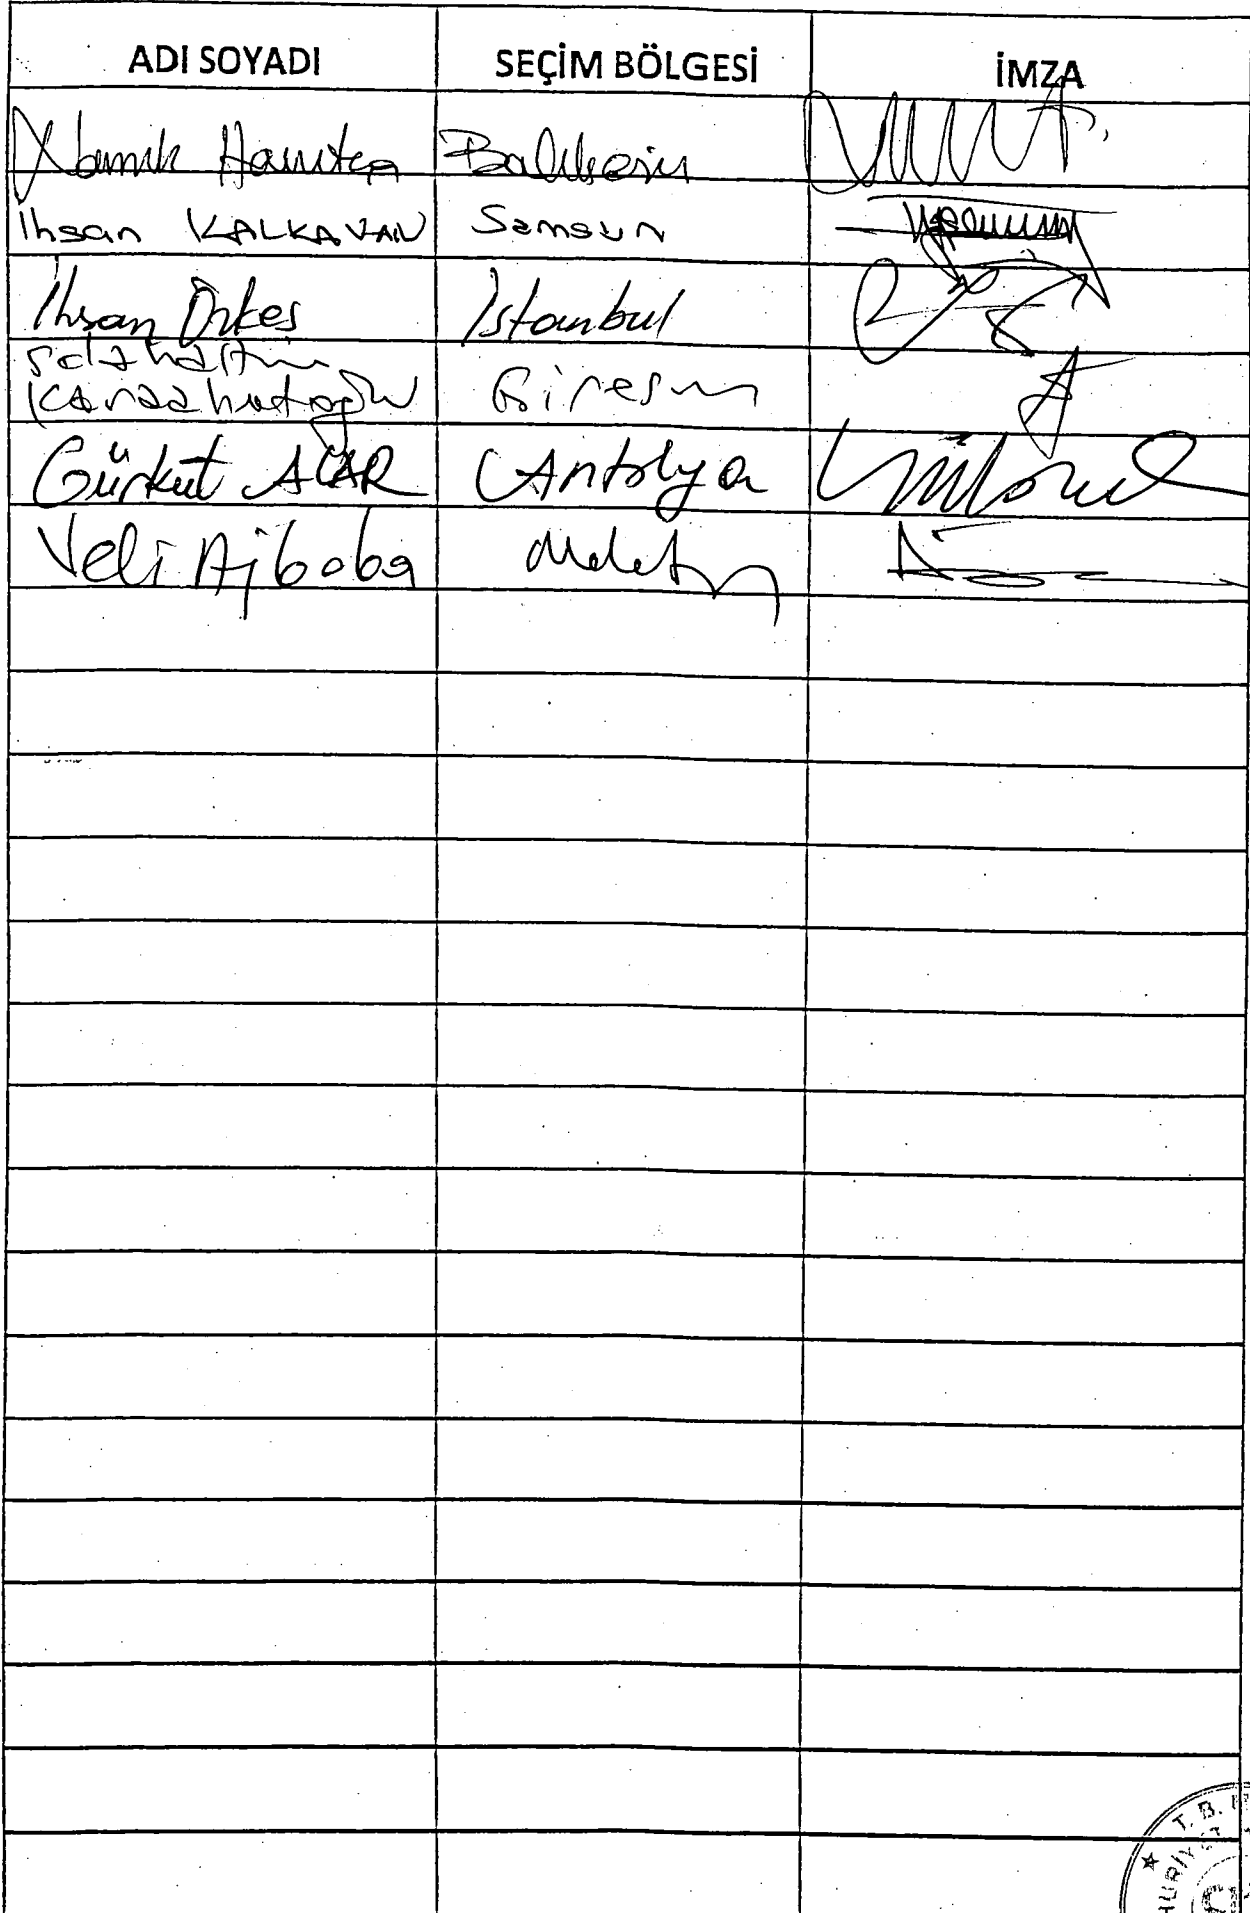 ADI SOYADI SEÇİM BÖLGESİ İMZA
Namık Havutça Balıkesir
İhsan KALKAVAN Samsun
İhsan Özkes İstanbul
Selahattin
Karaahmetoğlu Giresun
Gürkut ACAR Antalya
Veli Ağbaba Malatya
T.B.